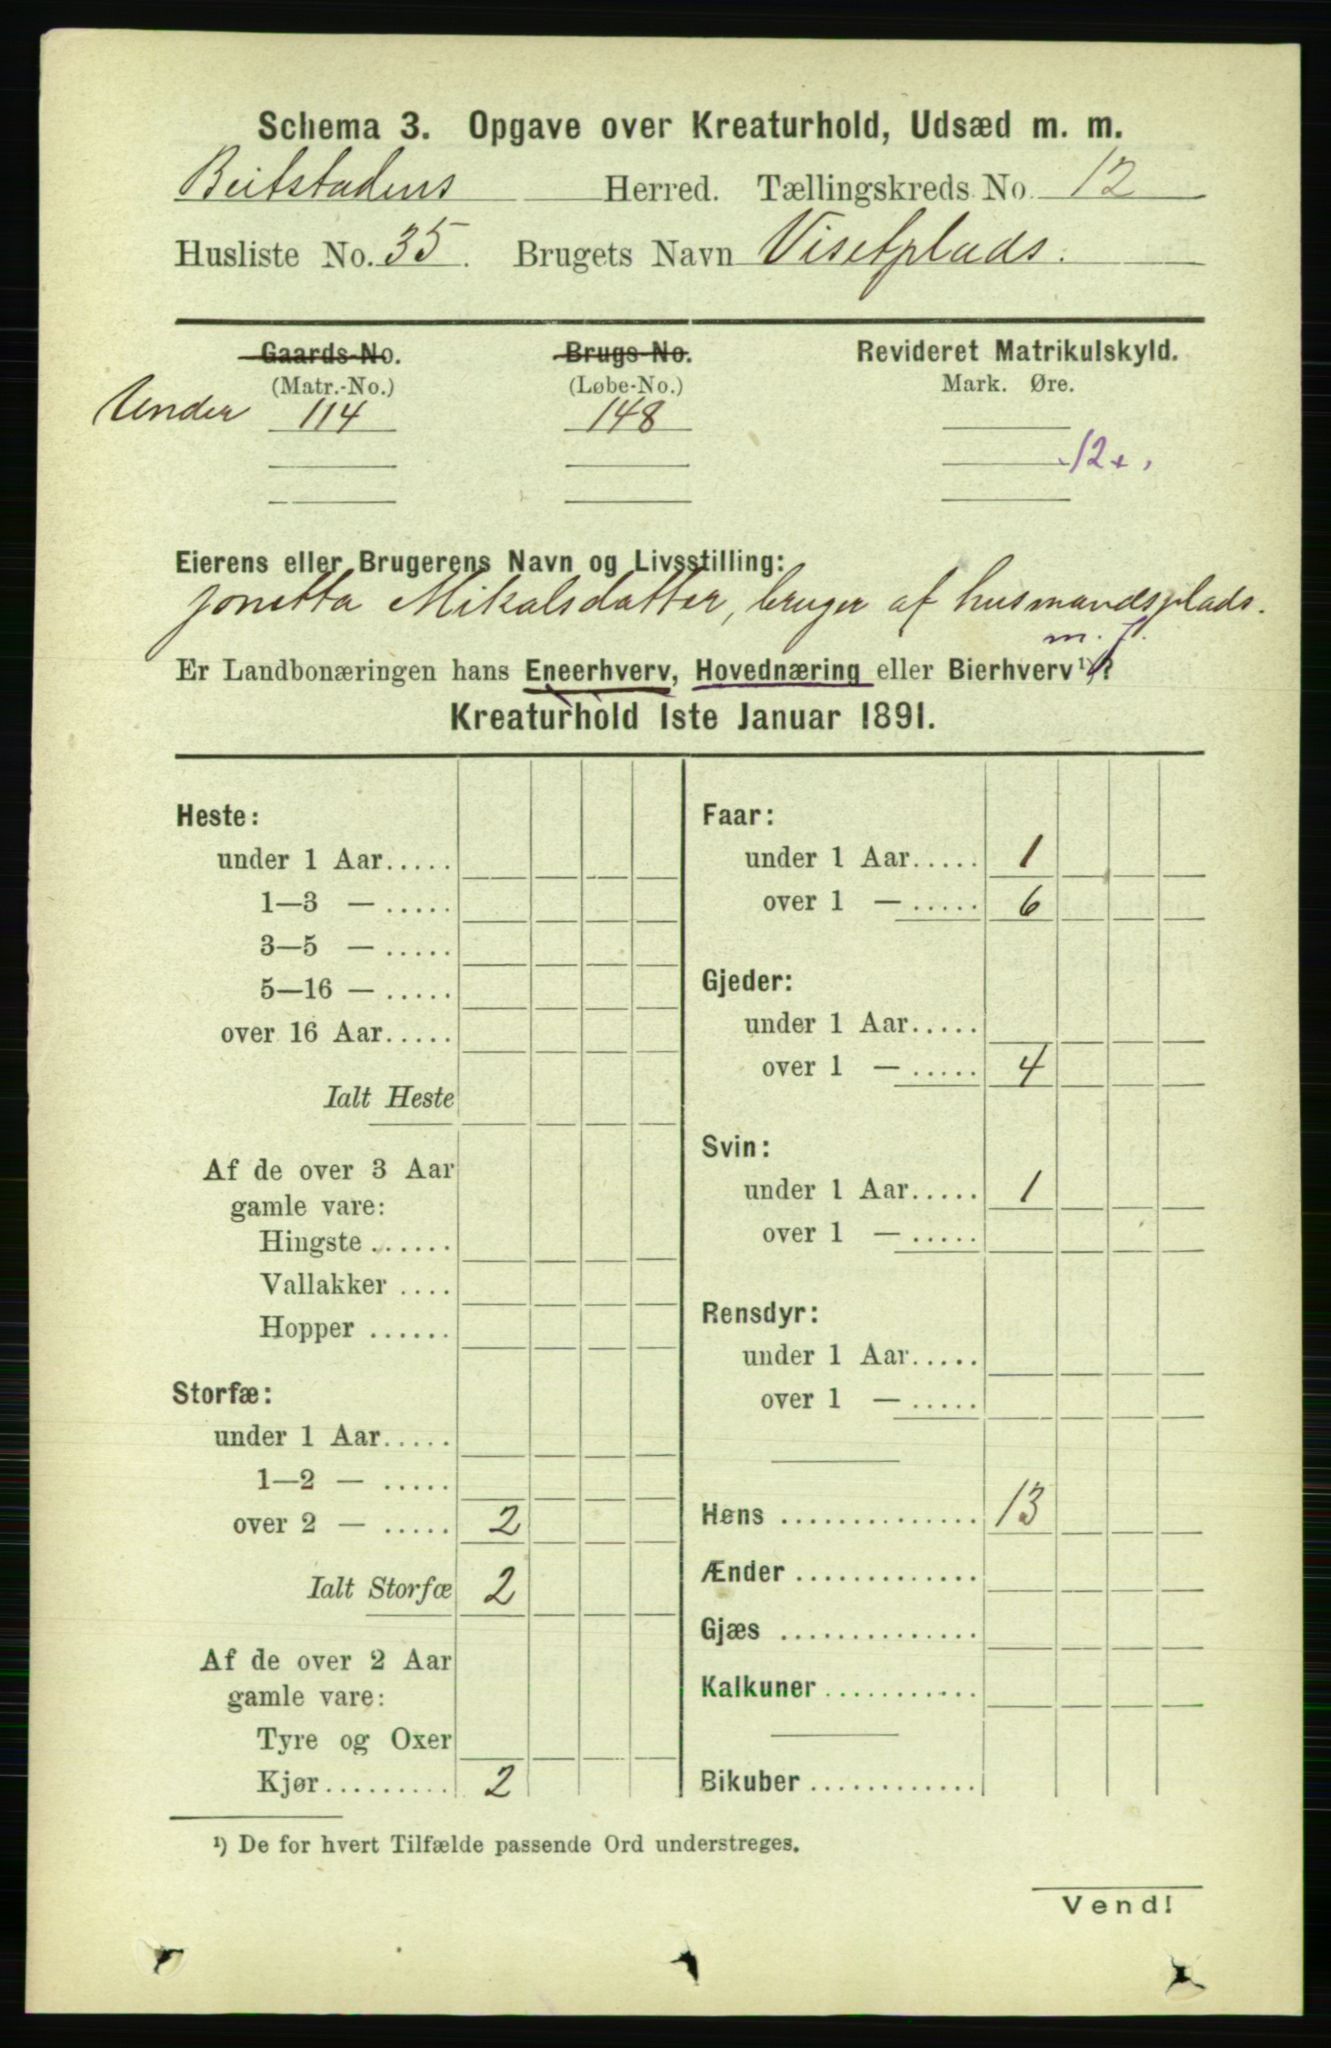 Schema 3. Opgave over Kreaturhold, Udsæd m. m.
Beitstadens Herred. Tællingskreds No. 12
Husliste No. 35. Brugets Navn Visetplads.
Gaards-No. Brugs-No. Revideret Matrikulskyld.
(Matr.-No.) (Løbe-No.) Mark. Øre.
Under 114 148
12
Eierens eller Brugerens Navn og Livsstilling:
Jonetta Mikalsdatter, bruger af husmandsplads.
m. J.
Er Landbonæringen hans Eneerhverv, Hovednæring eller Bierhverv¹)?
Kreaturhold 1ste Januar 1891.
Heste:
under 1 Aar.....
1—3 — .....
3—5 — .....
5—16 — .....
over 16 Aar.....
Ialt Heste
Af de over 3 Aar
gamle vare:
Hingste ......
Vallakker ....
Hopper ......
Storfæ:
under 1 Aar.....
1—2 — .....
over 2 — ..... 2
Ialt Storfæ 2
Af de over 2 Aar
gamle vare:
Tyre og Oxer
Kjør......... 2
Faar:
under 1 Aar..... 1
over 1 — ..... 6
Gjeder:
under 1 Aar.....
over 1 — ..... 4
Svin:
under 1 Aar..... 1
over 1 — .....
Rensdyr:
under 1 Aar.....
over 1 — .....
Høns .............. 13
Ænder .............
Gjæs ..............
Kalkuner ...........
Bikuber ............
¹) De for hvert Tilfælde passende Ord understreges.
Vend!